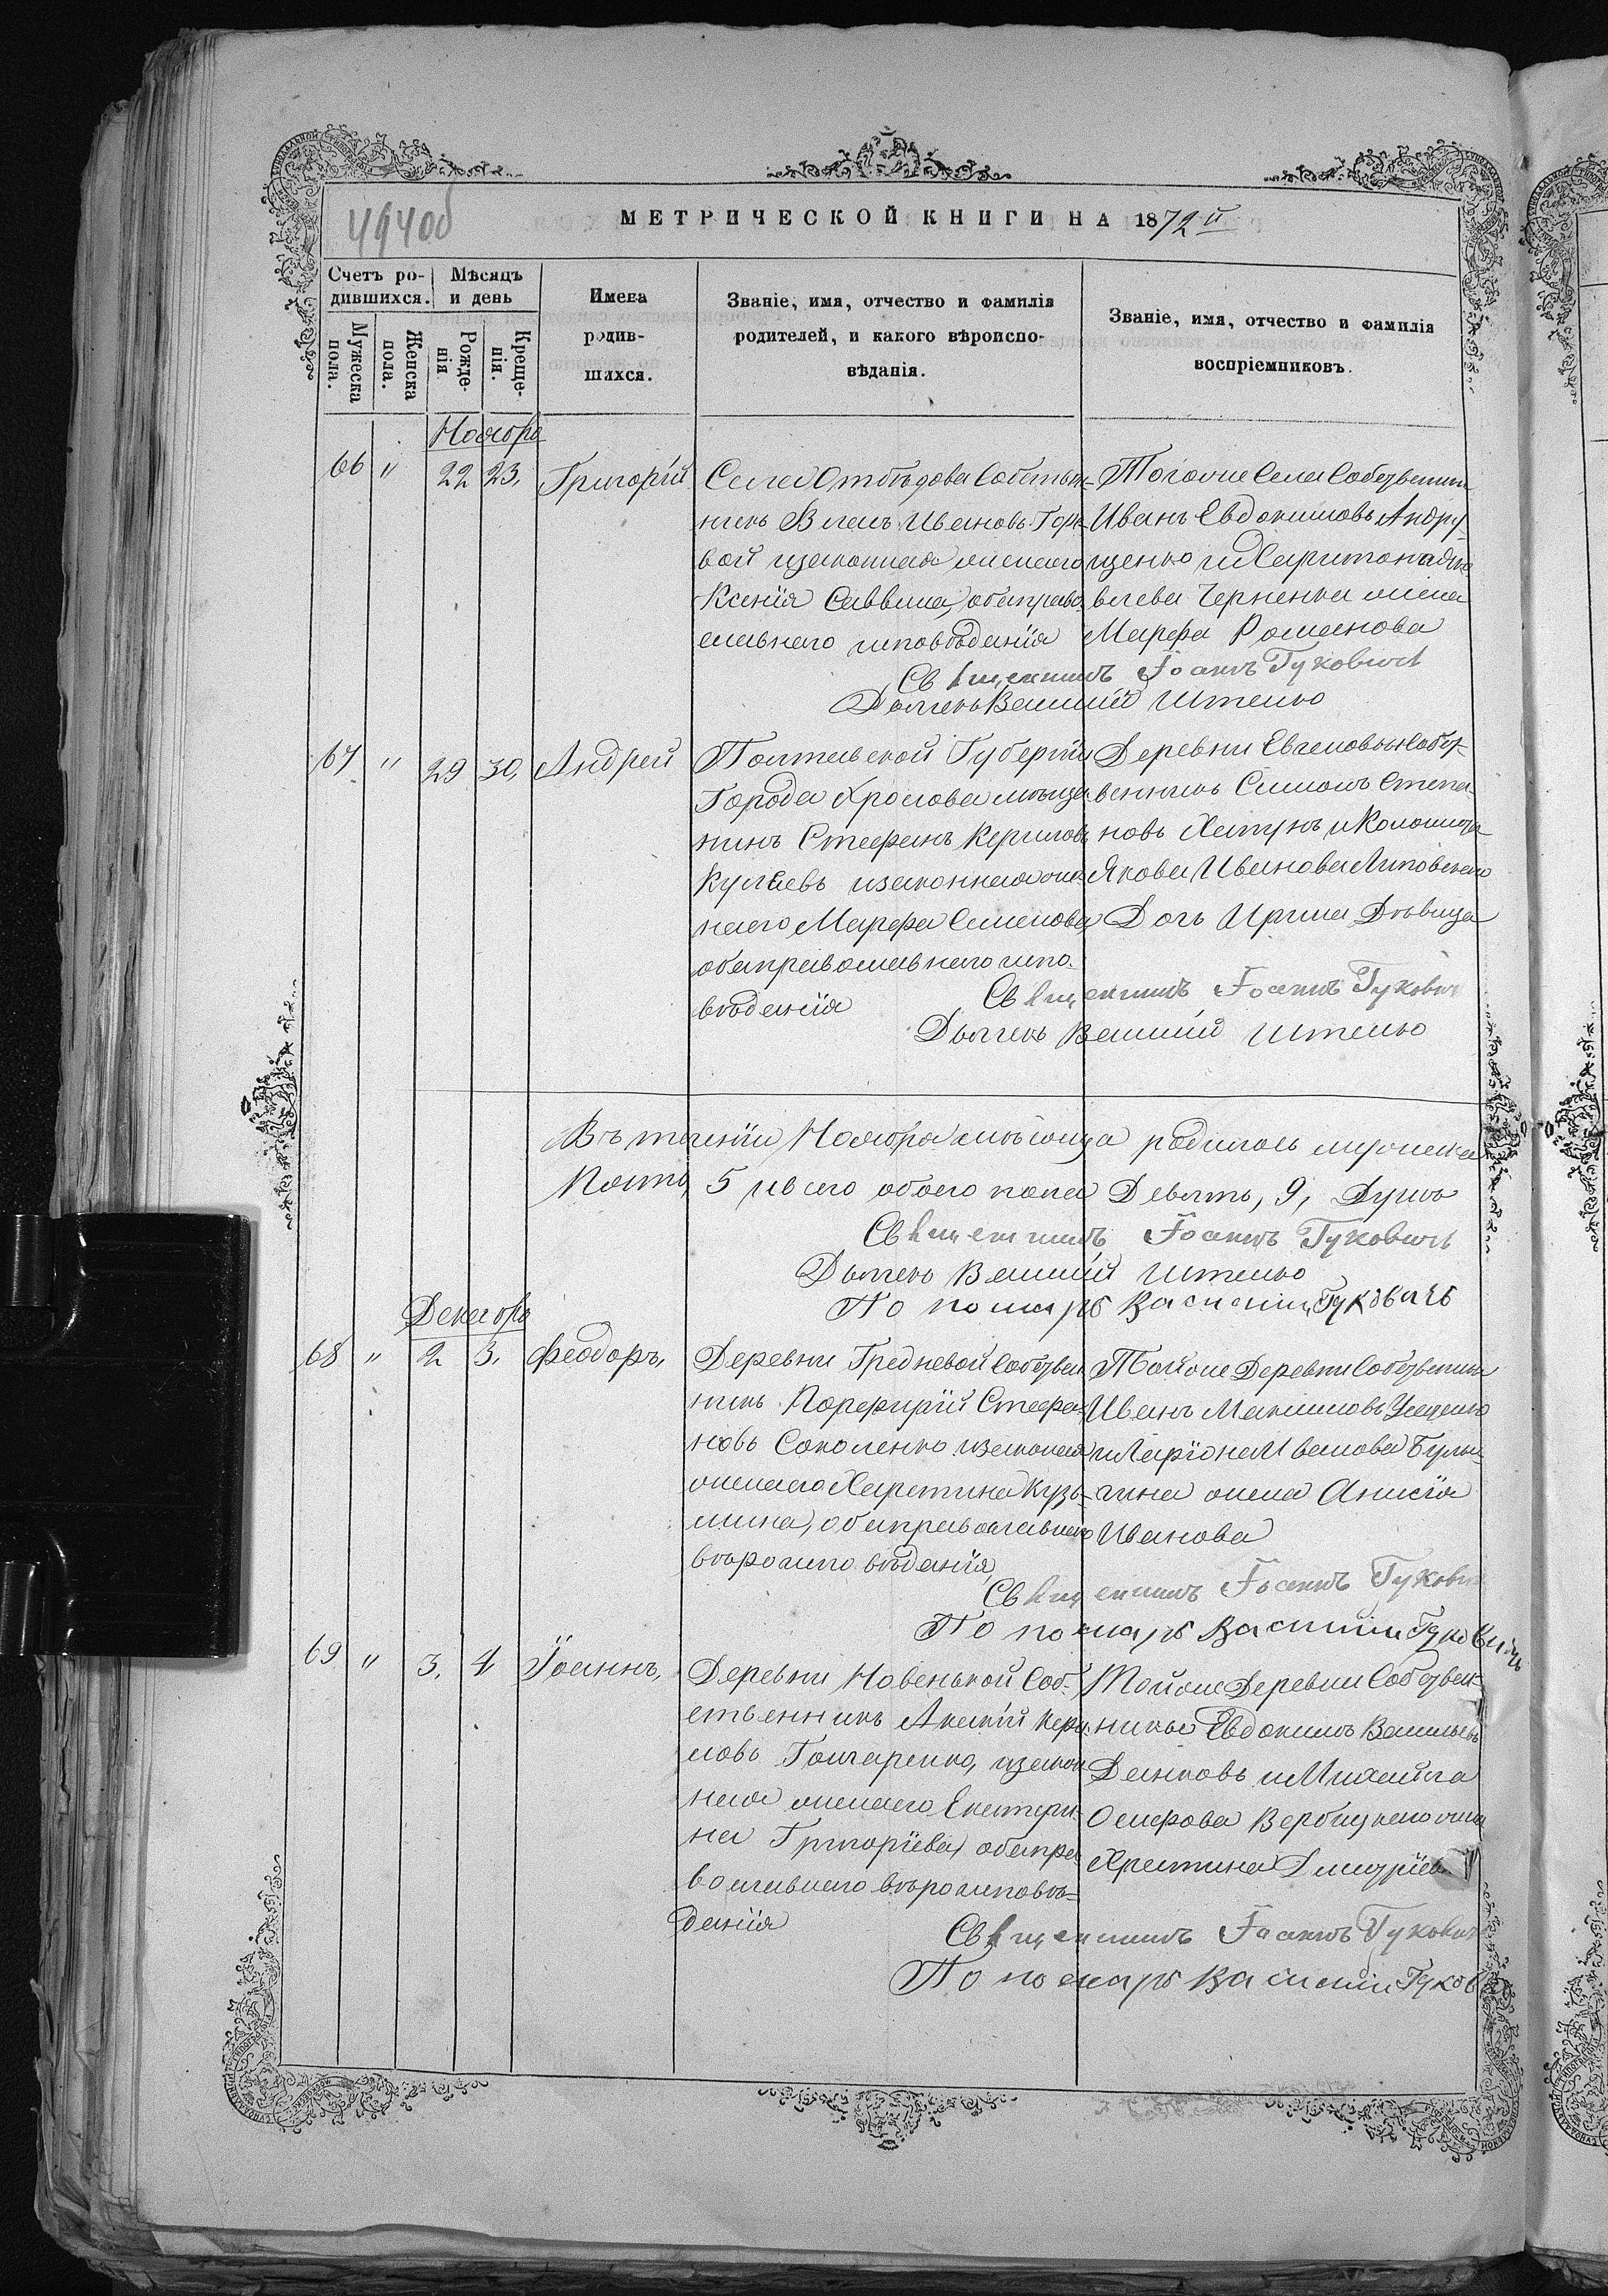 494об
МЕТРИЧЕСКОЙ КНИГИ НА 1872й
Счетъ ро-
дившихся.
Мѣсяцъ
и день
Имена
родив-
шихся.
Званіе, имя, отчество и фамилія
родителей, и какого вѣроиспо-
вѣданія.
Званіе, имя, отчество и фамилія
воспріемниковъ.
Мужеска
пола.
Женска
пола.
Рожде-
нія
Креще-
нія.
Ноября
66 " 22 23, Григорій
Села Собствен-
никъ Власъ Ивановъ
вой изаконная женаего
Ксенія Саввина, обаправо
славнаго исповѣданія
Тогоже Села Собственник
Иванъ Евдокимовъ Андру
щенко иХаритона Яко
влева Черненка жена
Марфа Романова
Священникъ Іоаннъ Гуковичъ
Дьячекъ Василій Ительо
67 " 29 30, Андрей
Полтавской Губерніи
Города Хролова мѣща
нинъ Стефанъ Кириловъ
изаконная же
наего Марфа Семенова,
обаправославнаго испо-
вѣданія
Деревни Собст
венникъ Симонъ Степа
новъ
Якова Иванова Липовскаго
Дочь Ирина Дѣвица
Священникъ Іоаннъ Гукович
Дьячекъ Василій Ительо
Въ теченіи Ноября мѣсяца родилось мужеска
Пять, 5 ивсего обоего пола Девять, 9, Душъ
Священникъ Іоаннъ Гуковичъ
Дьячекъ Василій Ительо
Пономарь Василій Гуковичъ
Декабрь
68 " 2 3, Феодоръ,
Деревни Гредневой Собствен
никъ Порфирій Стефа-
новъ Соколенко изаконая
женаего Харетина Кузь-
мина, обаправославнаго
вѣроисповѣданія,
Тойже Деревни Собственник
Иванъ Максимовъ
иЛаріона Иванова
гина жена Анисія
Иванова
Священникъ Іоаннъ Гукович
Пономарь Василій Гуковичъ
69 " 3, 4 Іоаннъ,
Деревни Новенькой Соб-
ственникъ Кири
ловъ Гончаренко, изакон
ная женаего Екатери-
на Григоріева, обапра
вославнаго вѣроисповѣ-
данія
Тойже Деревни Собствен-
ники Евдокимъ Васильевъ
Данковъ иМихайла
Осифова Вербицкаго жена
Христина Дмитріев
Священникъ Іоаннъ Гукович
Пономарь Василій Гуков